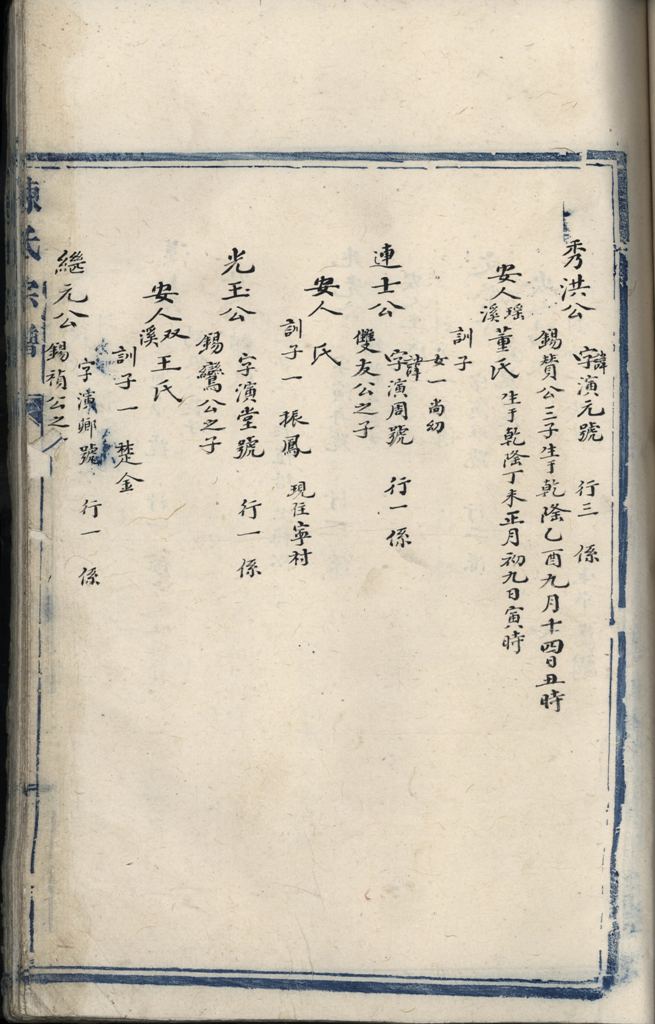 秀洪公
諱字演元號 行三 係
錫贊公三子生于乾隆乙酉九月十四日丑時
安人瑶溪董氏 生于乾隆丁未正月初九日寅時
訓子
女一 尚幼
連士公
諱字演周號 行一 係
雙友公之子
安人 氏
訓子一 振鳳 現住寧村
光玉公
字演堂號 行一 係
錫鸞公之子
安人双溪王氏
訓子一 楚金
繼元公
字演卿號 行一 係
錫禎公之
陳氏宗譜